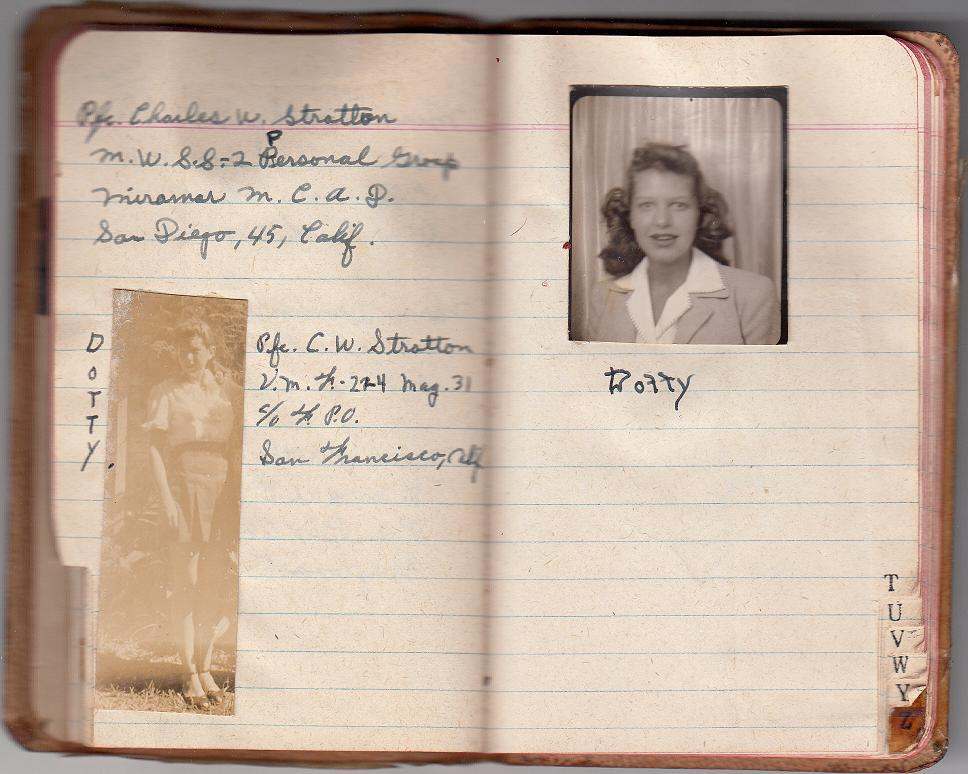 Pfc. Charles W. Stratton
P
M.W.S.S-2 Personal Group
Miramar M.C.A.D.
San Diego, 45, Calif.
DOTTY.
Pfc. C.W. Stratton
V.M.F.-224 Mag. 31
c/o F.P.O.
San Francisco,
Dotty
T
U
V
W
Y
Z